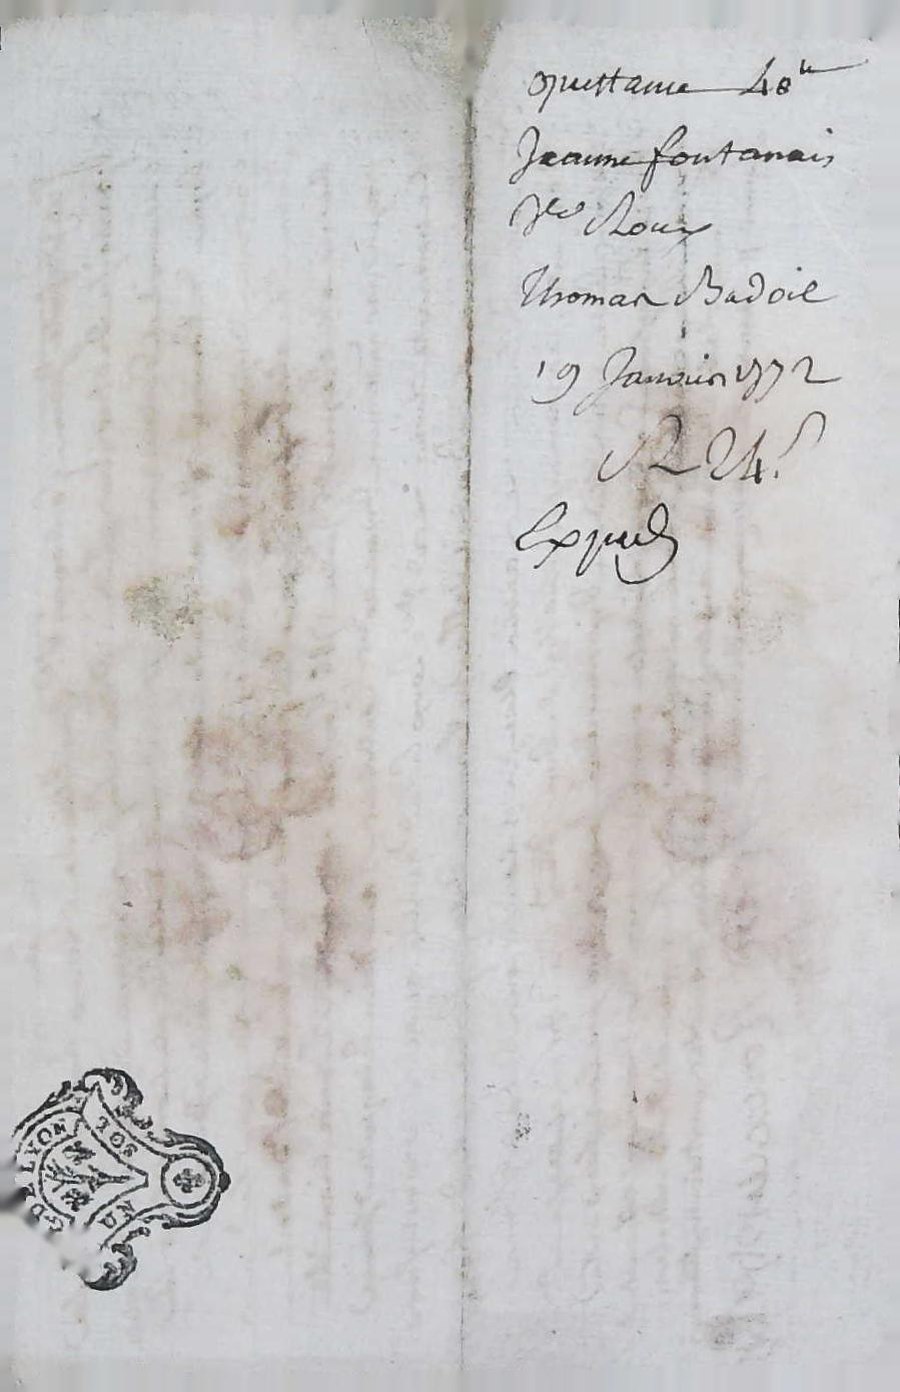 quittance 48ᵗᵗ
Jeanne fontanais
Roux
Thomas Badoil
19 Janvier 1772
R 24.ˢ
Exped
DE LYON
SOL
UN